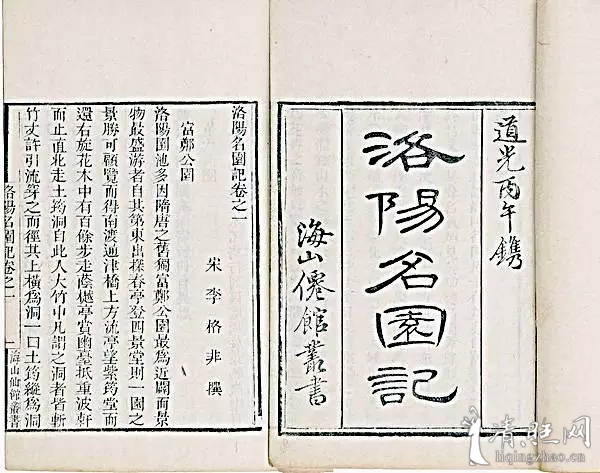 道光丙午鐫
洛陽名園記
海山僊館叢書
洛陽名園記卷之一
宋李格非撰
富鄭公園
洛陽園池多因隋唐之舊獨富鄭公園最爲近闢而景
物最盛游者自其第東出探春亭登四景堂則一園之
景勝可顧覽而得南渡通津橋上方流亭望紫筠堂而
還右旋花木中有百餘步走蔭樾亭賞幽臺抵重波軒
而止直北走土筠洞自此入大竹中凡謂之洞者皆斬
竹丈許引流穿之而徑其上橫爲洞一曰土筠縱爲洞
洛陽名園記卷之一 一 海山仙館叢書
清旺网
liqingzhao.cn